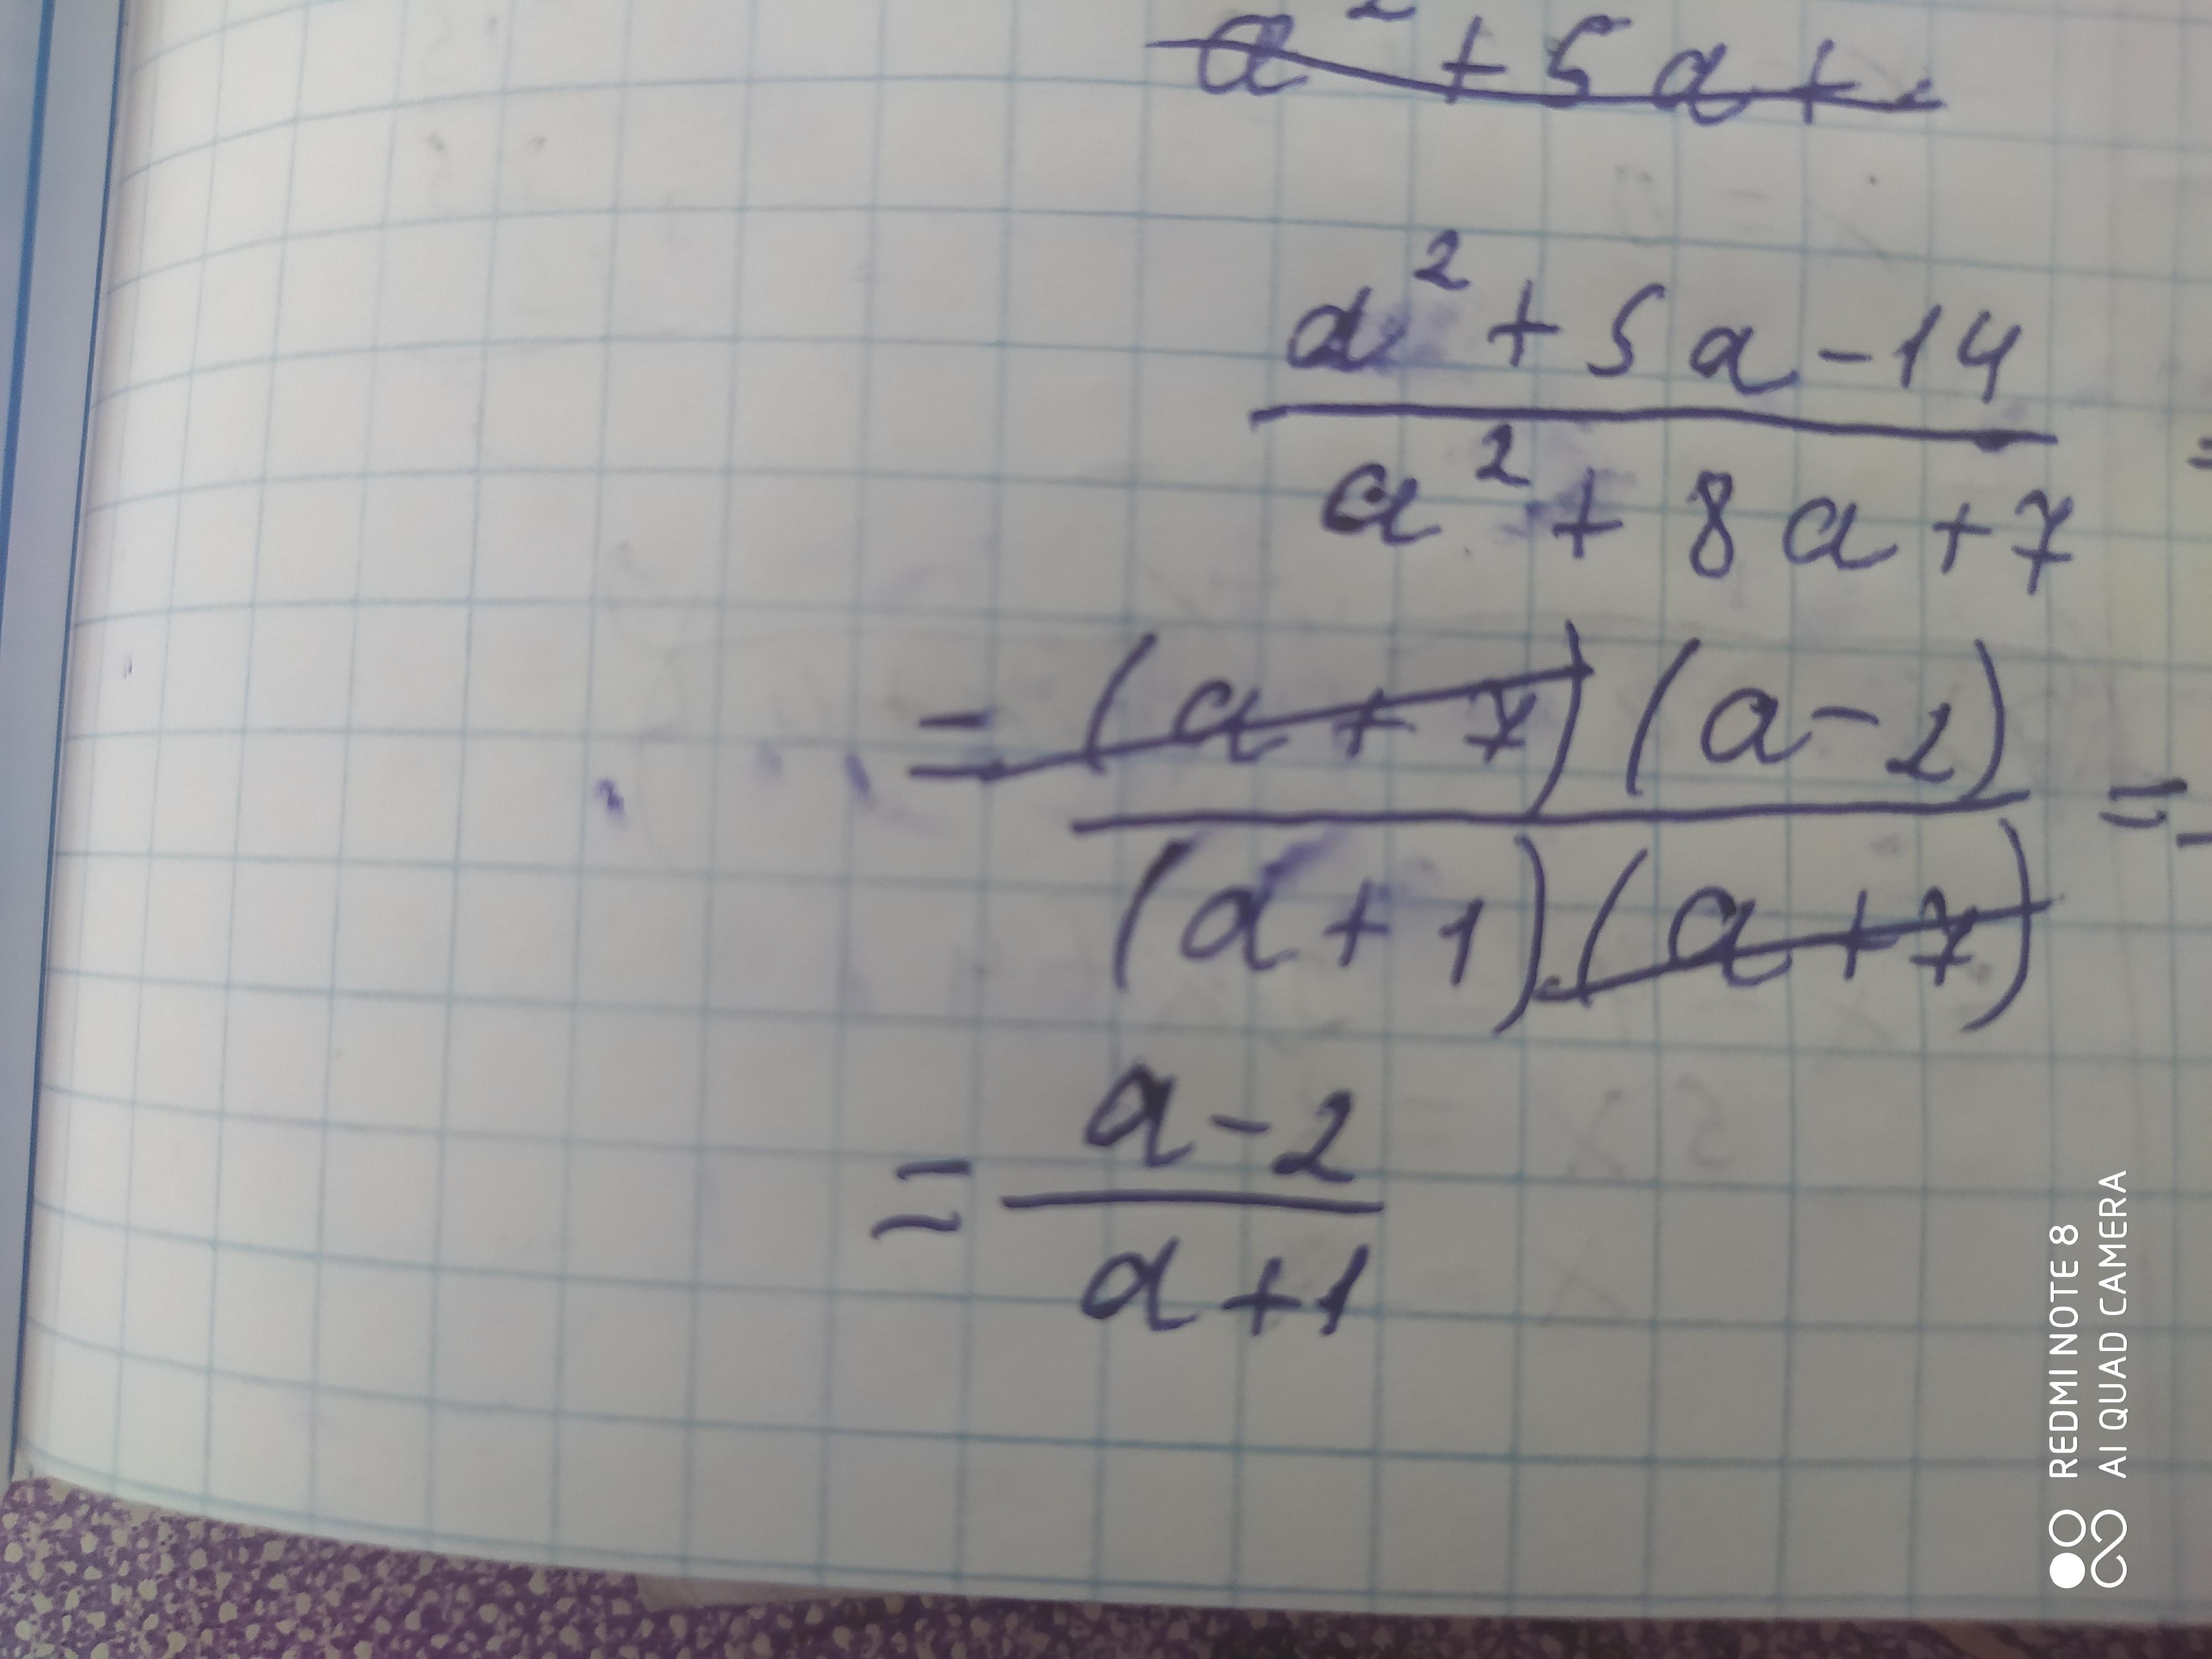 a² + 5a +
a² + 5a - 14
a² + 8a + 7 =
= (a + 7) (a - 2)
(a + 1) (a + 7) =
= a - 2
a + 1
REDMI NOTE 8
AI QUAD CAMERA